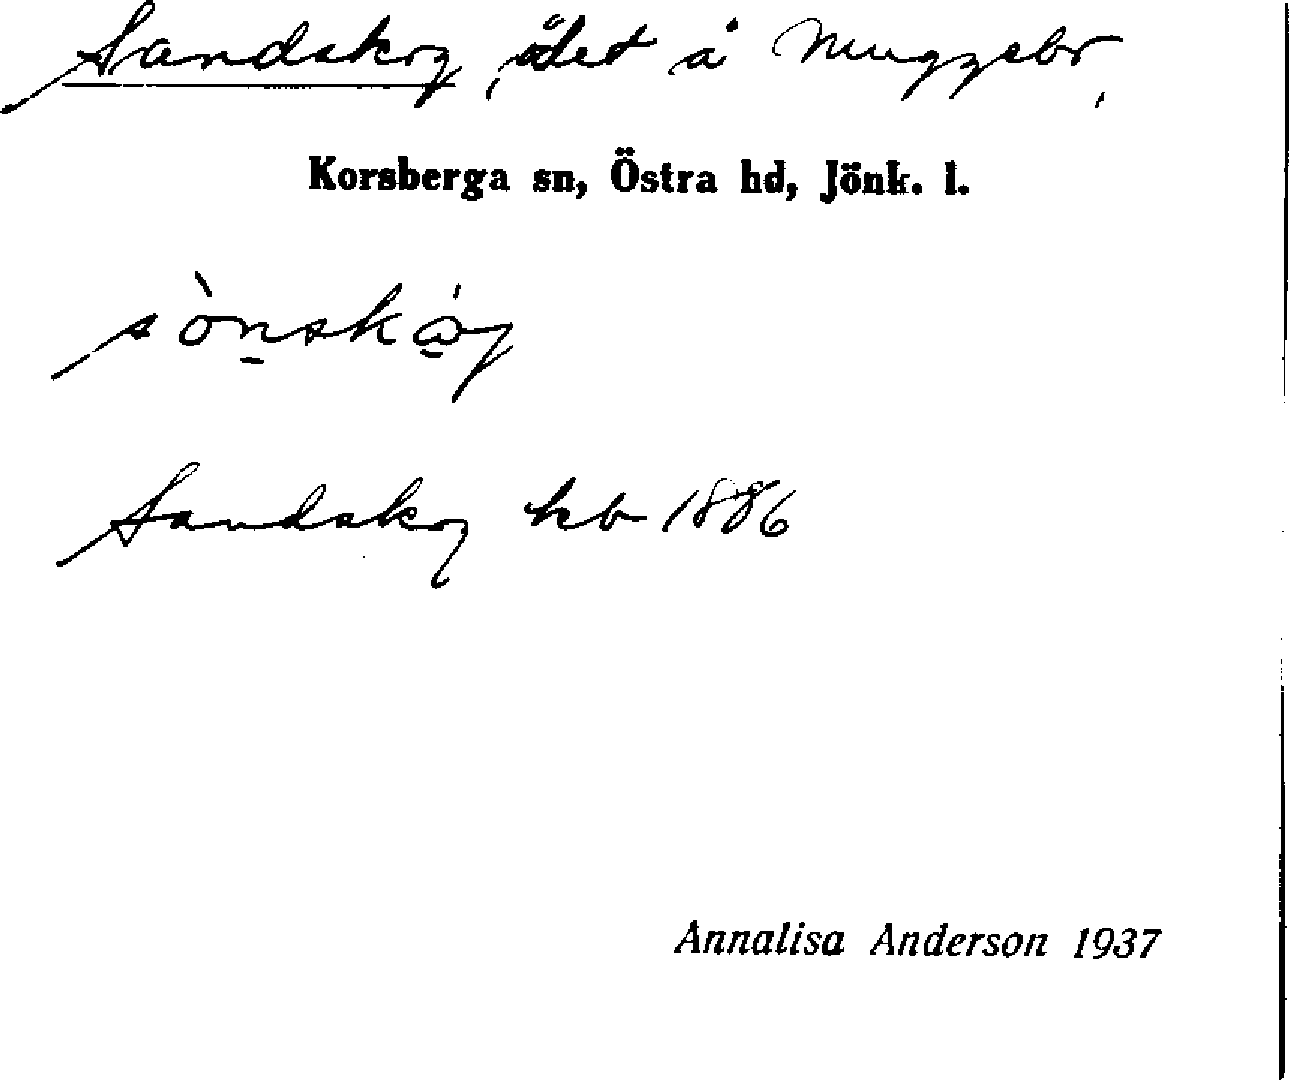 Sandskog, ålet å Muggebo,
Korsberga sn, Östra hd, Jönk. l.
sònskóg
Sandskog kb 1886
Annalisa Anderson 1937